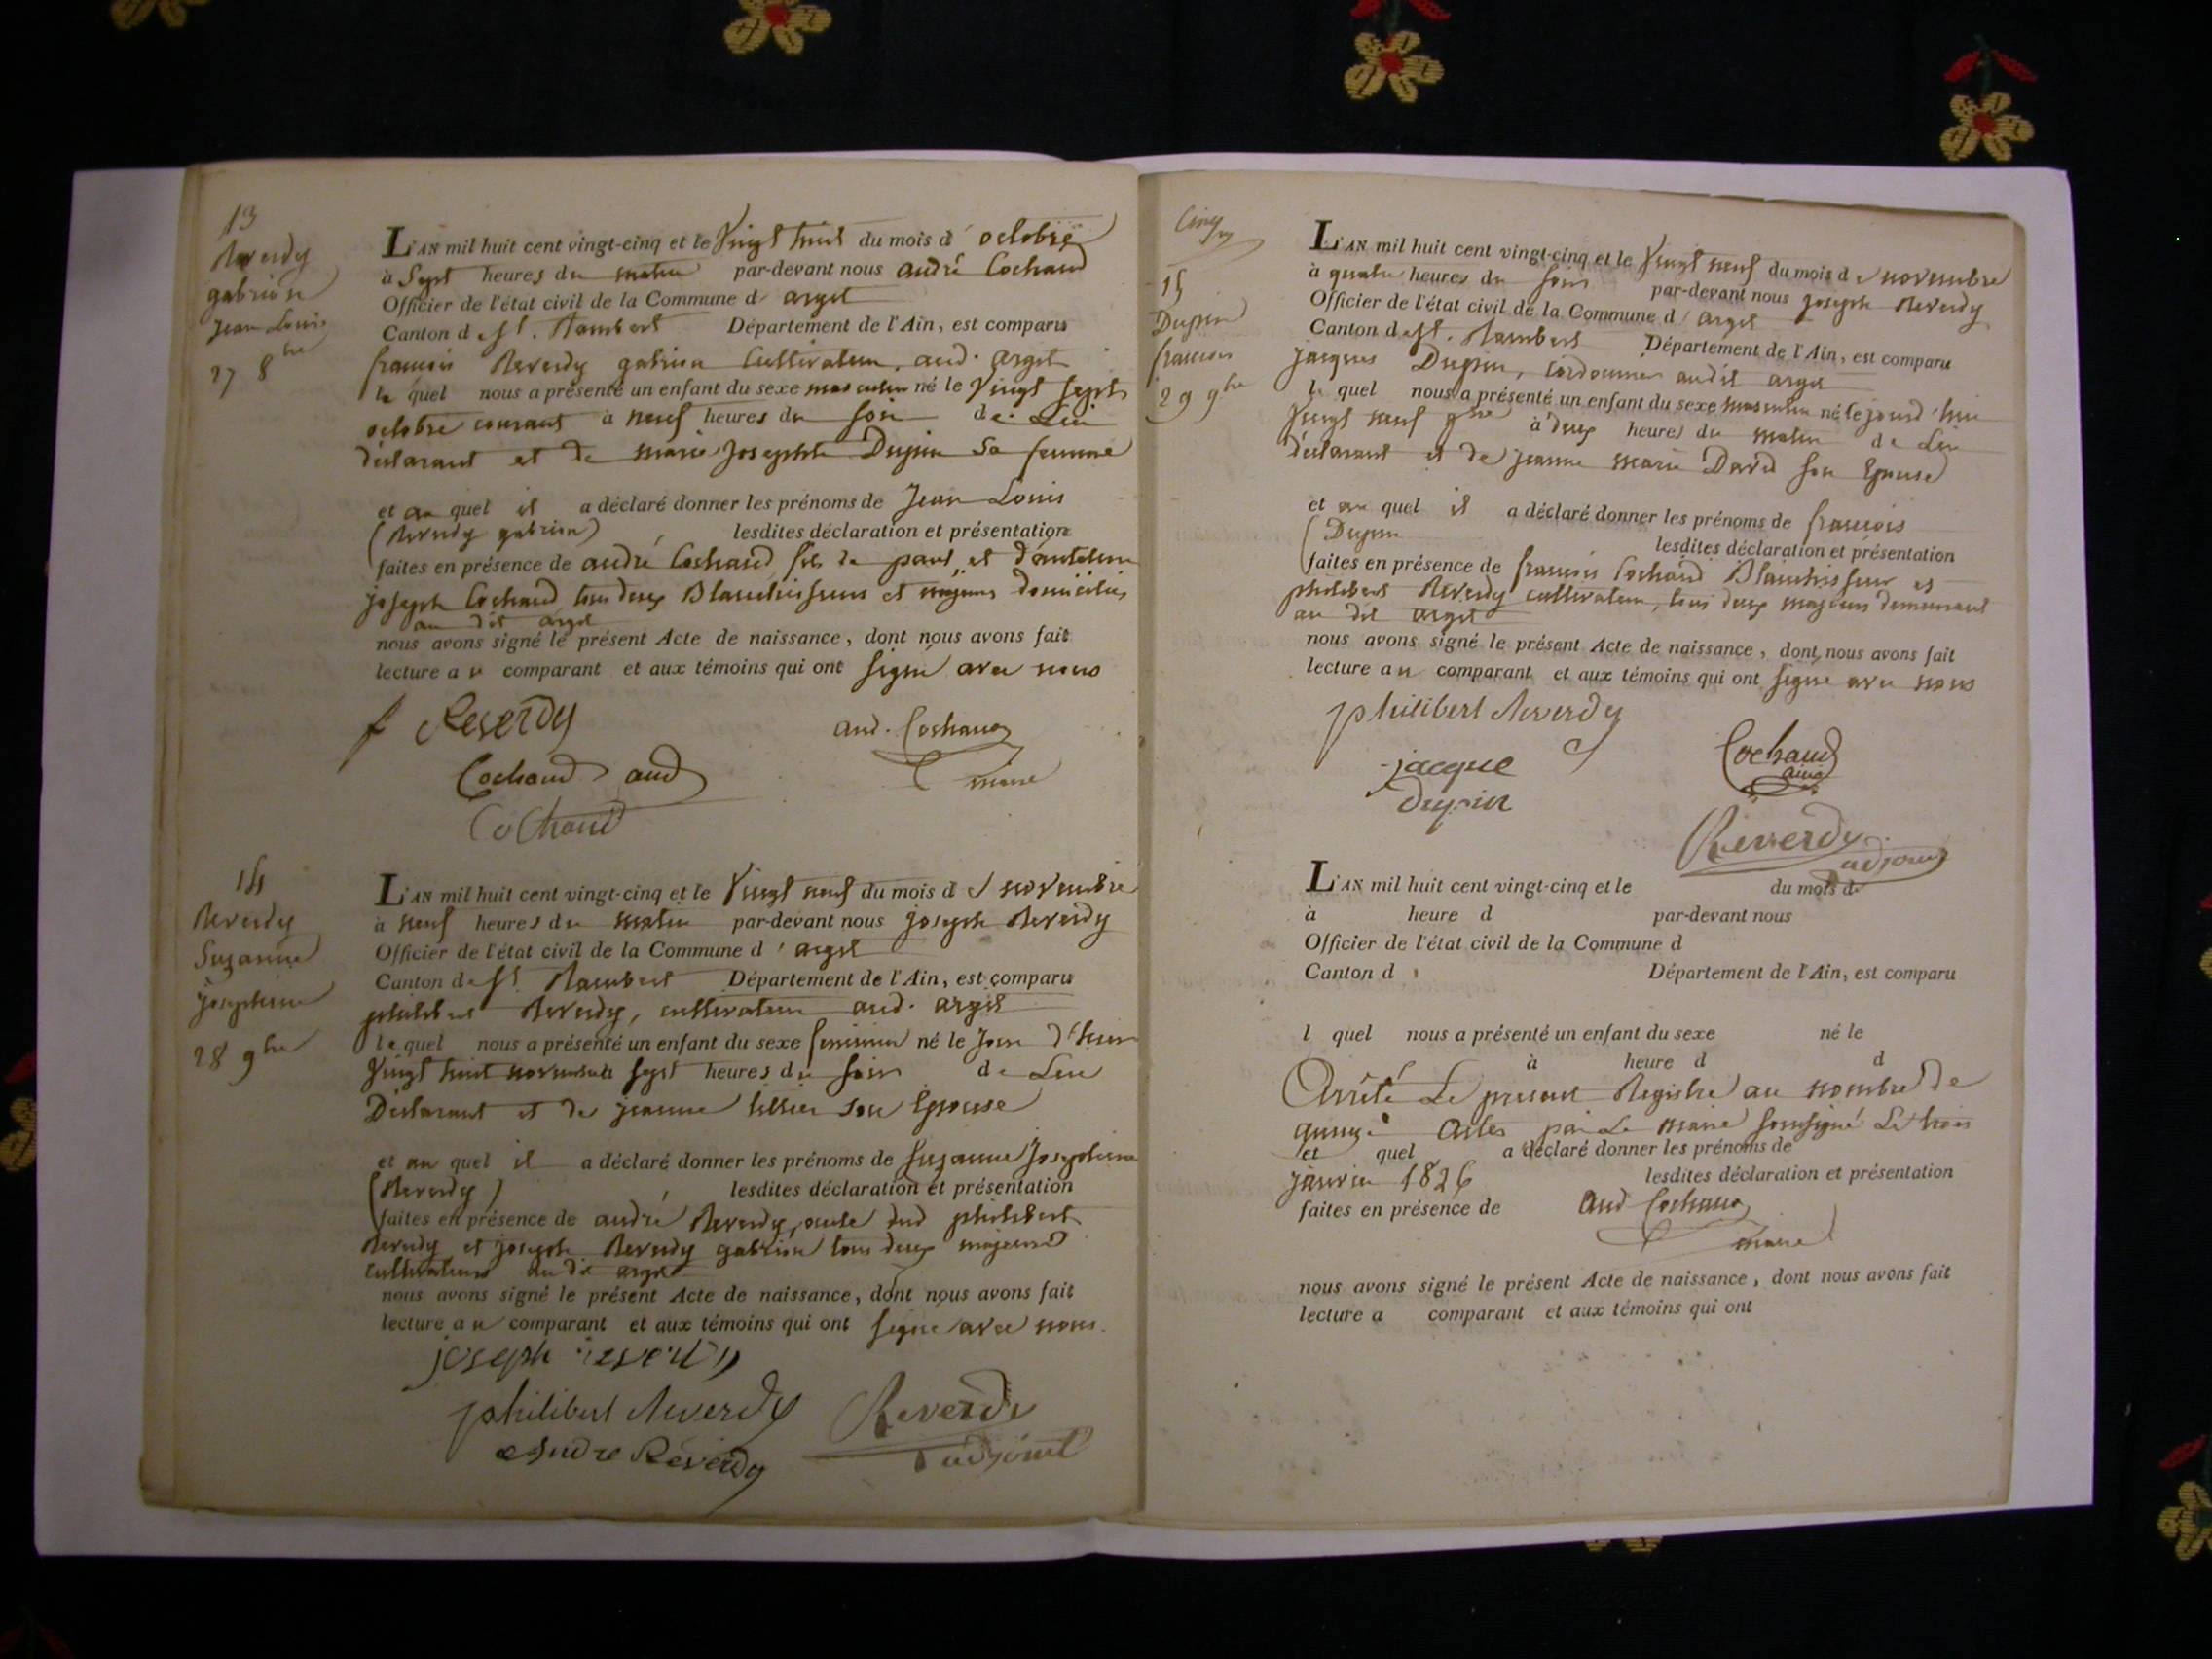 13
Reverdy
gabrion
Jean Louis
27 8bre
L'AN mil huit cent vingt-cinq et le Vingt huit du mois d'octobre
à Sept heures du matin par-devant nous andré Cochaud
Officier de l'état civil de la Commune d'argit
Canton de St. Rambert Département de l'Ain, est comparu
francois Reverdy gabrion Cultivateur aud. argit
le quel nous a présenté un enfant du sexe masculin né le Vingt sept
octobre courant à neuf heures du soir de Lui
déclarant et de marie Josephte Dupin sa femme
et au quel il a déclaré donner les prénoms de Jean Louis
(Reverdy gabrion) lesdites déclaration et présentation
faites en présence de andré Cochaud fils de paul, et d'antelme
joseph Cochaud tous deux Blanchisseurs et majeurs domiciliés
au dit argit
nous avons signé le présent Acte de naissance, dont nous avons fait
lecture au comparant et aux témoins qui ont signé avec nous
f Reverdy
and. Cochaud
maire
Cochaud and
Cochaud
14
Reverdy
Suzanne
josephine
28 9bre
L'AN mil huit cent vingt-cinq et le Vingt neuf du mois de novembre
à neuf heures du matin par-devant nous joseph Reverdy
Officier de l'état civil de la Commune d'argit
Canton de St. Rambert Département de l'Ain, est comparu
philibert Reverdy, cultivateur aud. argit
le quel nous a présenté un enfant du sexe feminin né le Jour d'hier
Vingt huit novembre à sept heures du soir de Lui
Déclarant et de jeanne son Epouse
et au quel il a déclaré donner les prénoms de Suzanne Josephine
(Reverdy) lesdites déclaration et présentation
faites en présence de andré Reverdy, oncle dud philibert
Reverdy et joseph Reverdy gabrion tous deux majeurs
cultivateurs au dit argit
nous avons signé le présent Acte de naissance, dont nous avons fait
lecture au comparant et aux témoins qui ont signé avec nous.
joseph reverdy
philibert Reverdy
Reverdy
adjoint
andre Reverdy
15
Dupin
francois
29 9bre
L'AN mil huit cent vingt-cinq et le Vingt neuf du mois de novembre
à quatre heures du soir par-devant nous joseph Reverdy
Officier de l'état civil de la Commune d'argit
Canton de St. Rambert Département de l'Ain, est comparu
jacques Dupin, Cordonnier audit argit
le quel nous a présenté un enfant du sexe masculin né le jourd'hui
Vingt neuf 9bre à deux heures du matin de Lui
déclarant et de jeanne marie David son Epouse
et au quel il a déclaré donner les prénoms de francois
(Dupin lesdites déclaration et présentation
faites en présence de francois Cochaud Blanchisseur et
philibert Reverdy cultivateur, tous deux majeurs demeurant
au dit argit
nous avons signé le présent Acte de naissance, dont nous avons fait
lecture au comparant et aux témoins qui ont signé avec nous
philibert Reverdy
jacque
Dupin
Cochaud
Reverdy
adjoint
L'AN mil huit cent vingt-cinq et le du mois de
à heure d par-devant nous
Officier de l'état civil de la Commune d
Canton d Département de l'Ain, est comparu
l quel nous a présenté un enfant du sexe né le
à heure d d
Arrêté Le présent Registre au nombre de
quinze Actes par Le maire soussigné Le trois
et quel a déclaré donner les prénoms de
janvier 1826 lesdites déclaration et présentation
faites en présence de And Cochaud
maire
nous avons signé le présent Acte de naissance, dont nous avons fait
lecture a comparant et aux témoins qui ont